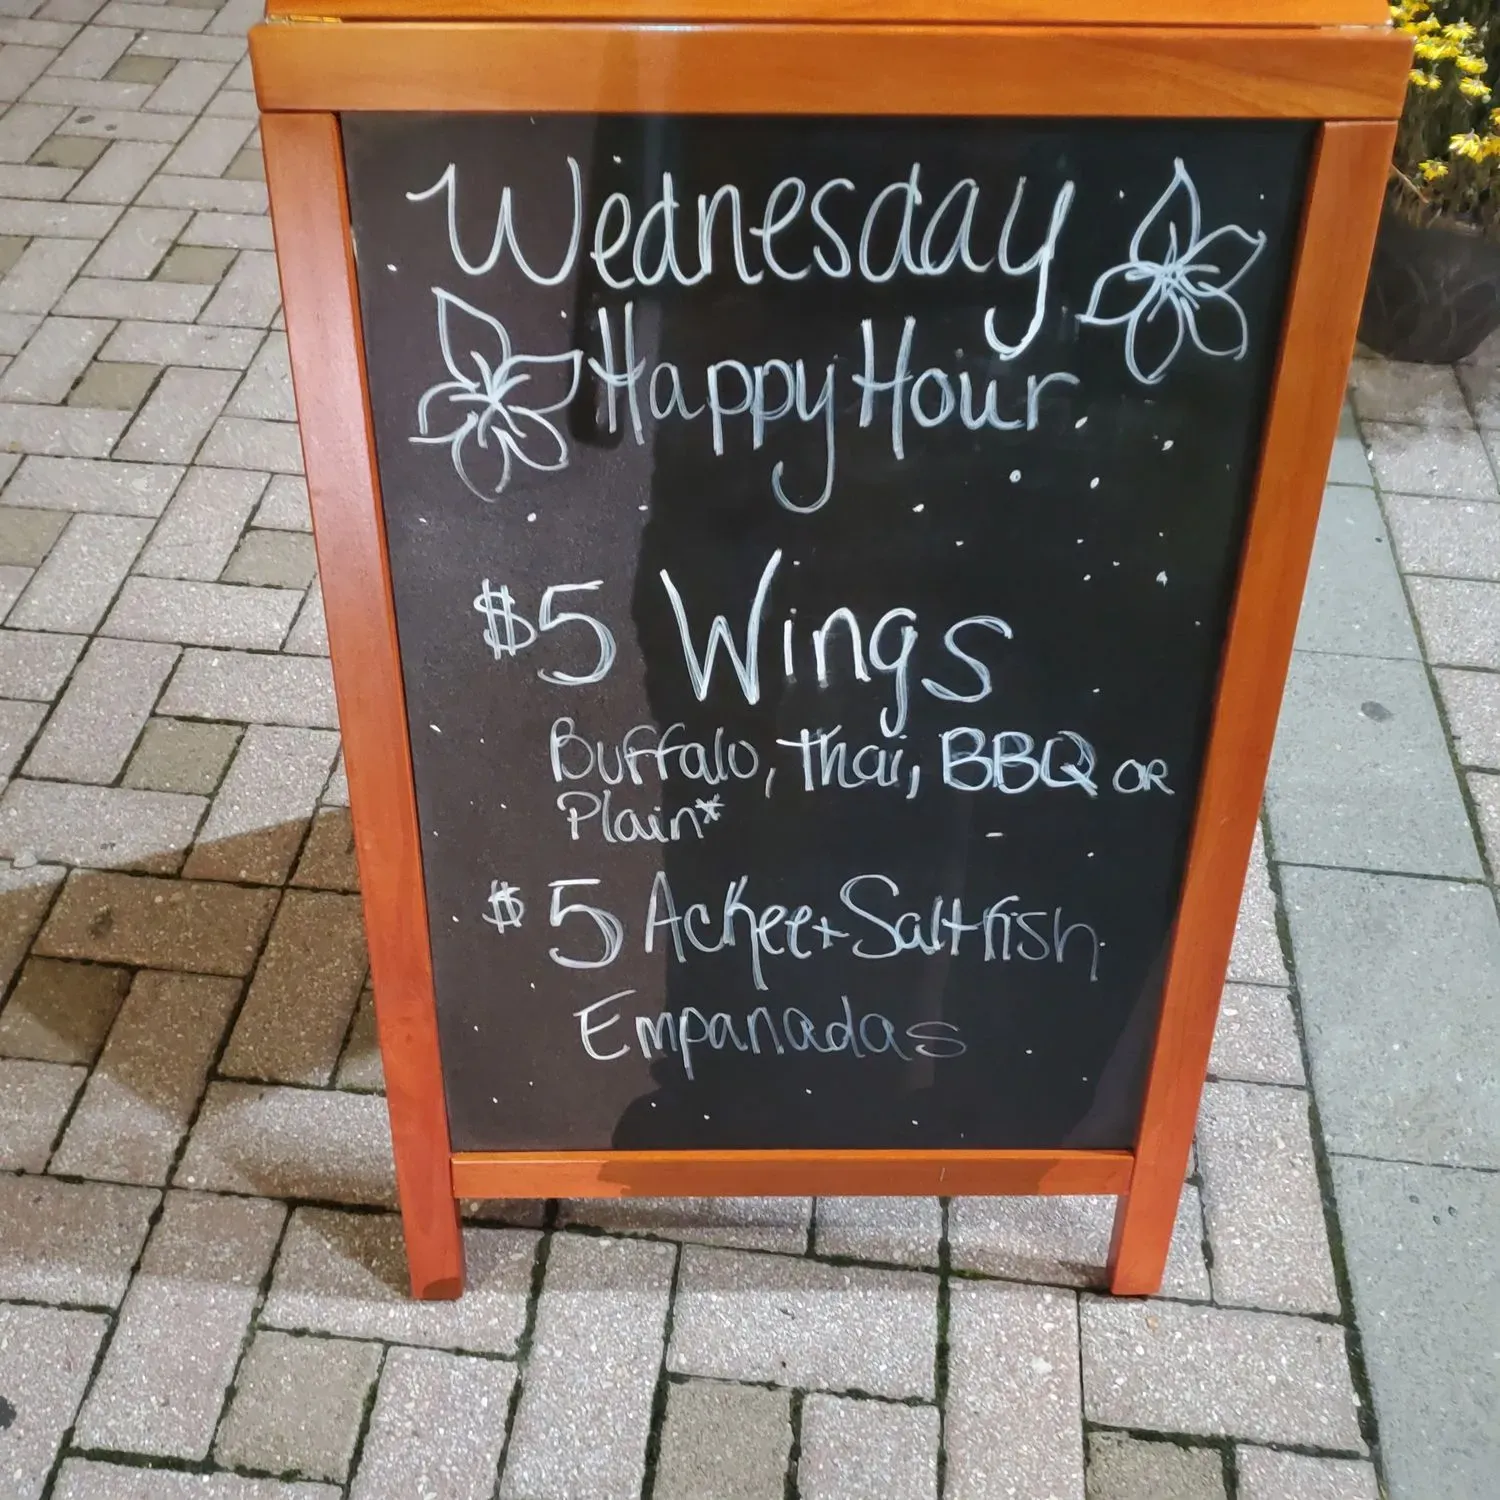 Wednesday
Happy Hour
$5 Wings
Buffalo, Thai, BBQ OR
Plain*
$5 Ackee + Saltfish
Empanadas